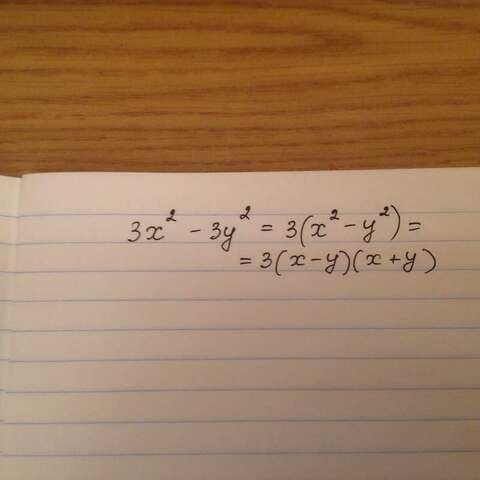 3x² - 3y² = 3(x² - y²) =
= 3(x - y)(x + y)